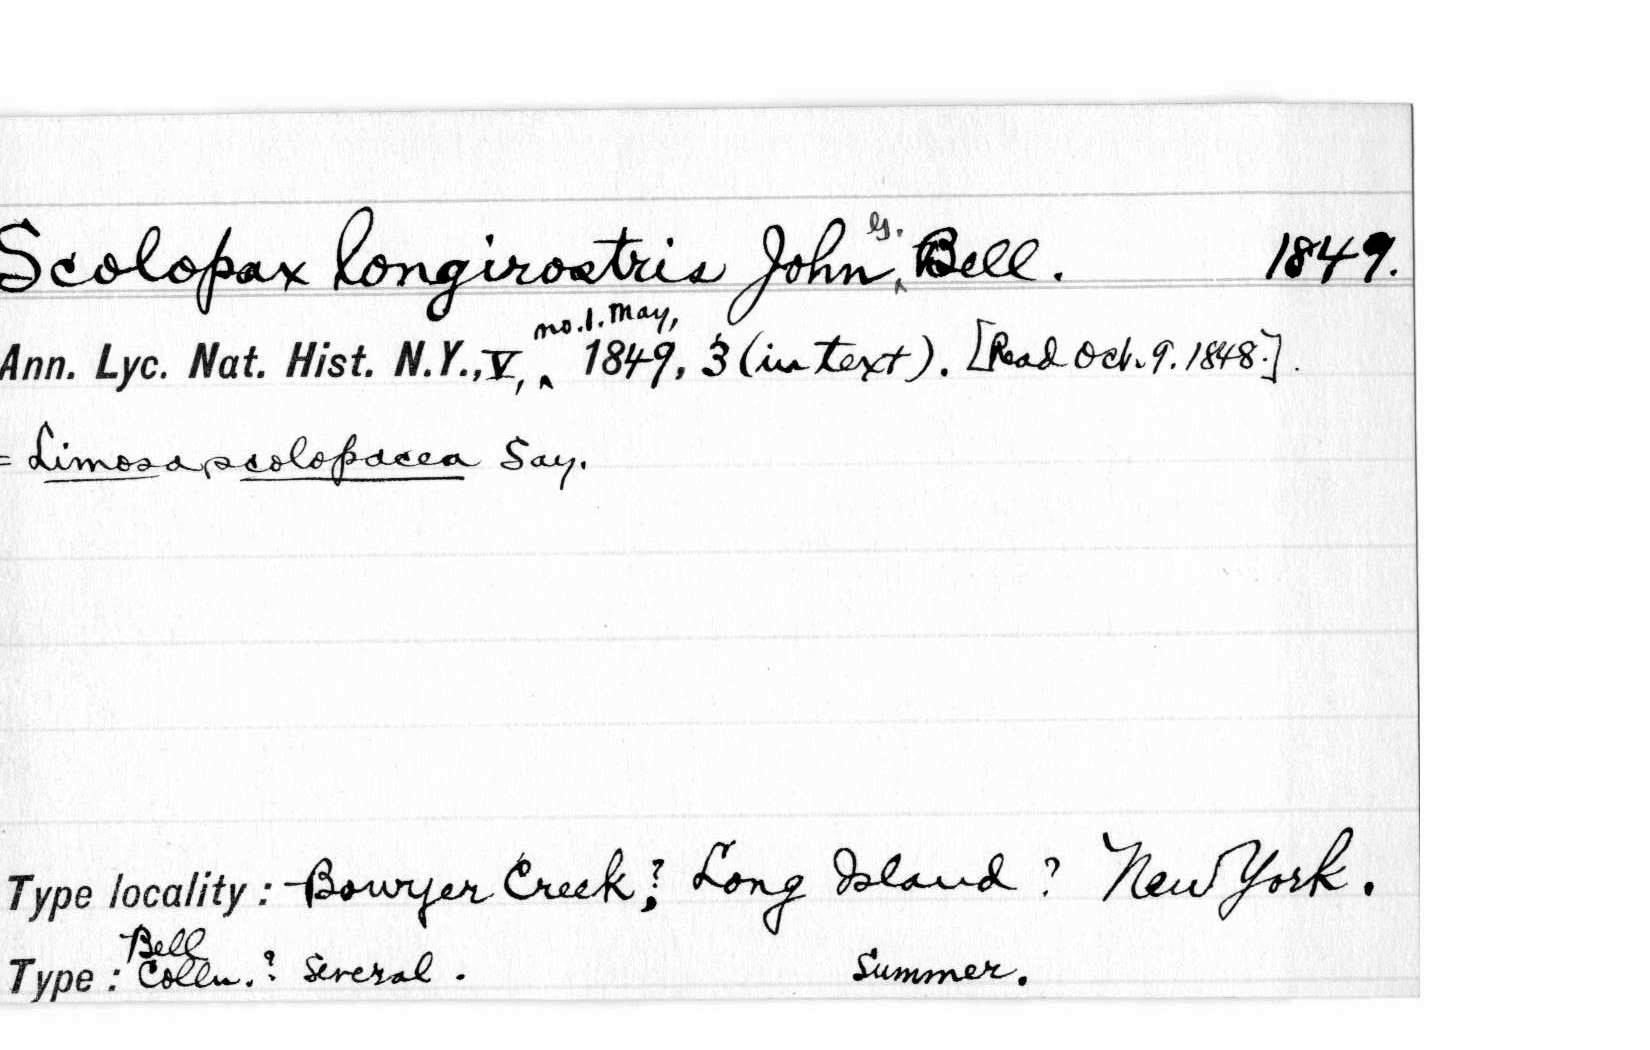 Scolopax longirostris John G. Bell. 1849.
Ann. Lyc. Nat. Hist. N.Y., V, no. 1. May, 1849, 3 (in text). [Read Oct. 9. 1848.].
= Limosa scolopacea Say.
Type locality: Bowyer Creek,? Long Island ? New York.
Type: Bell Colln.? Several. Summer.